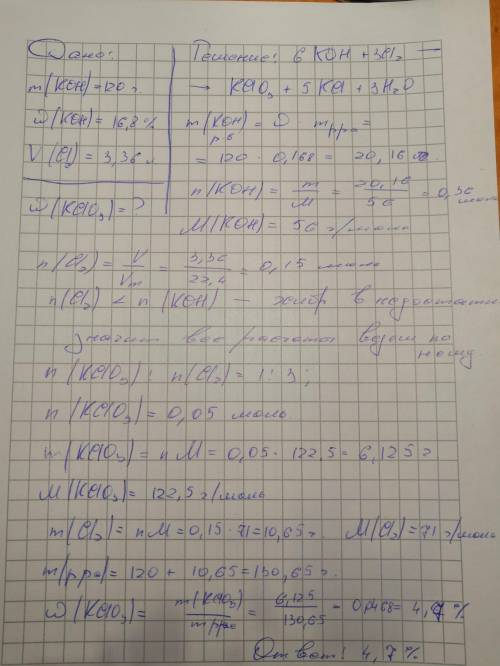 Дано:
m(KOH)=120 г.
ω(KOH)=16,8%
V(Cl₂)=3,36 л.
ω(KClO₃)=?
Решение: 6 KOH + 3Cl₂ —
→ KClO₃ + 5 KCl + 3H₂O
m(KOH) = ω · m р-ра =
р.в
= 120 · 0,168 = 20,16 г.
n(KOH) = m/M = 20,16/56 = 0,36 моль
M(KOH) = 56 г/моль
n(Cl₂) = V/Vm = 3,36/22,4 = 0,15 моль
n(Cl₂) < n(KOH) — хлор в недостатке
значит все расчеты ведем по
нему.
n(KClO₃) : n(Cl₂) = 1 : 3;
n(KClO₃) = 0,05 моль
m(KClO₃) = n M = 0,05 · 122,5 = 6,125 г
M(KClO₃) = 122,5 г/моль
m(Cl₂) = nM = 0,15 · 71 = 10,65 г. M(Cl₂) = 71 г/моль
m(р-ра) = 120 + 10,65 = 130,65 г.
ω(KClO₃) = m(KClO₃)/m р-ра = 6,125/130,65 = 0,0468 = 4,7%
Ответ: 4,7%